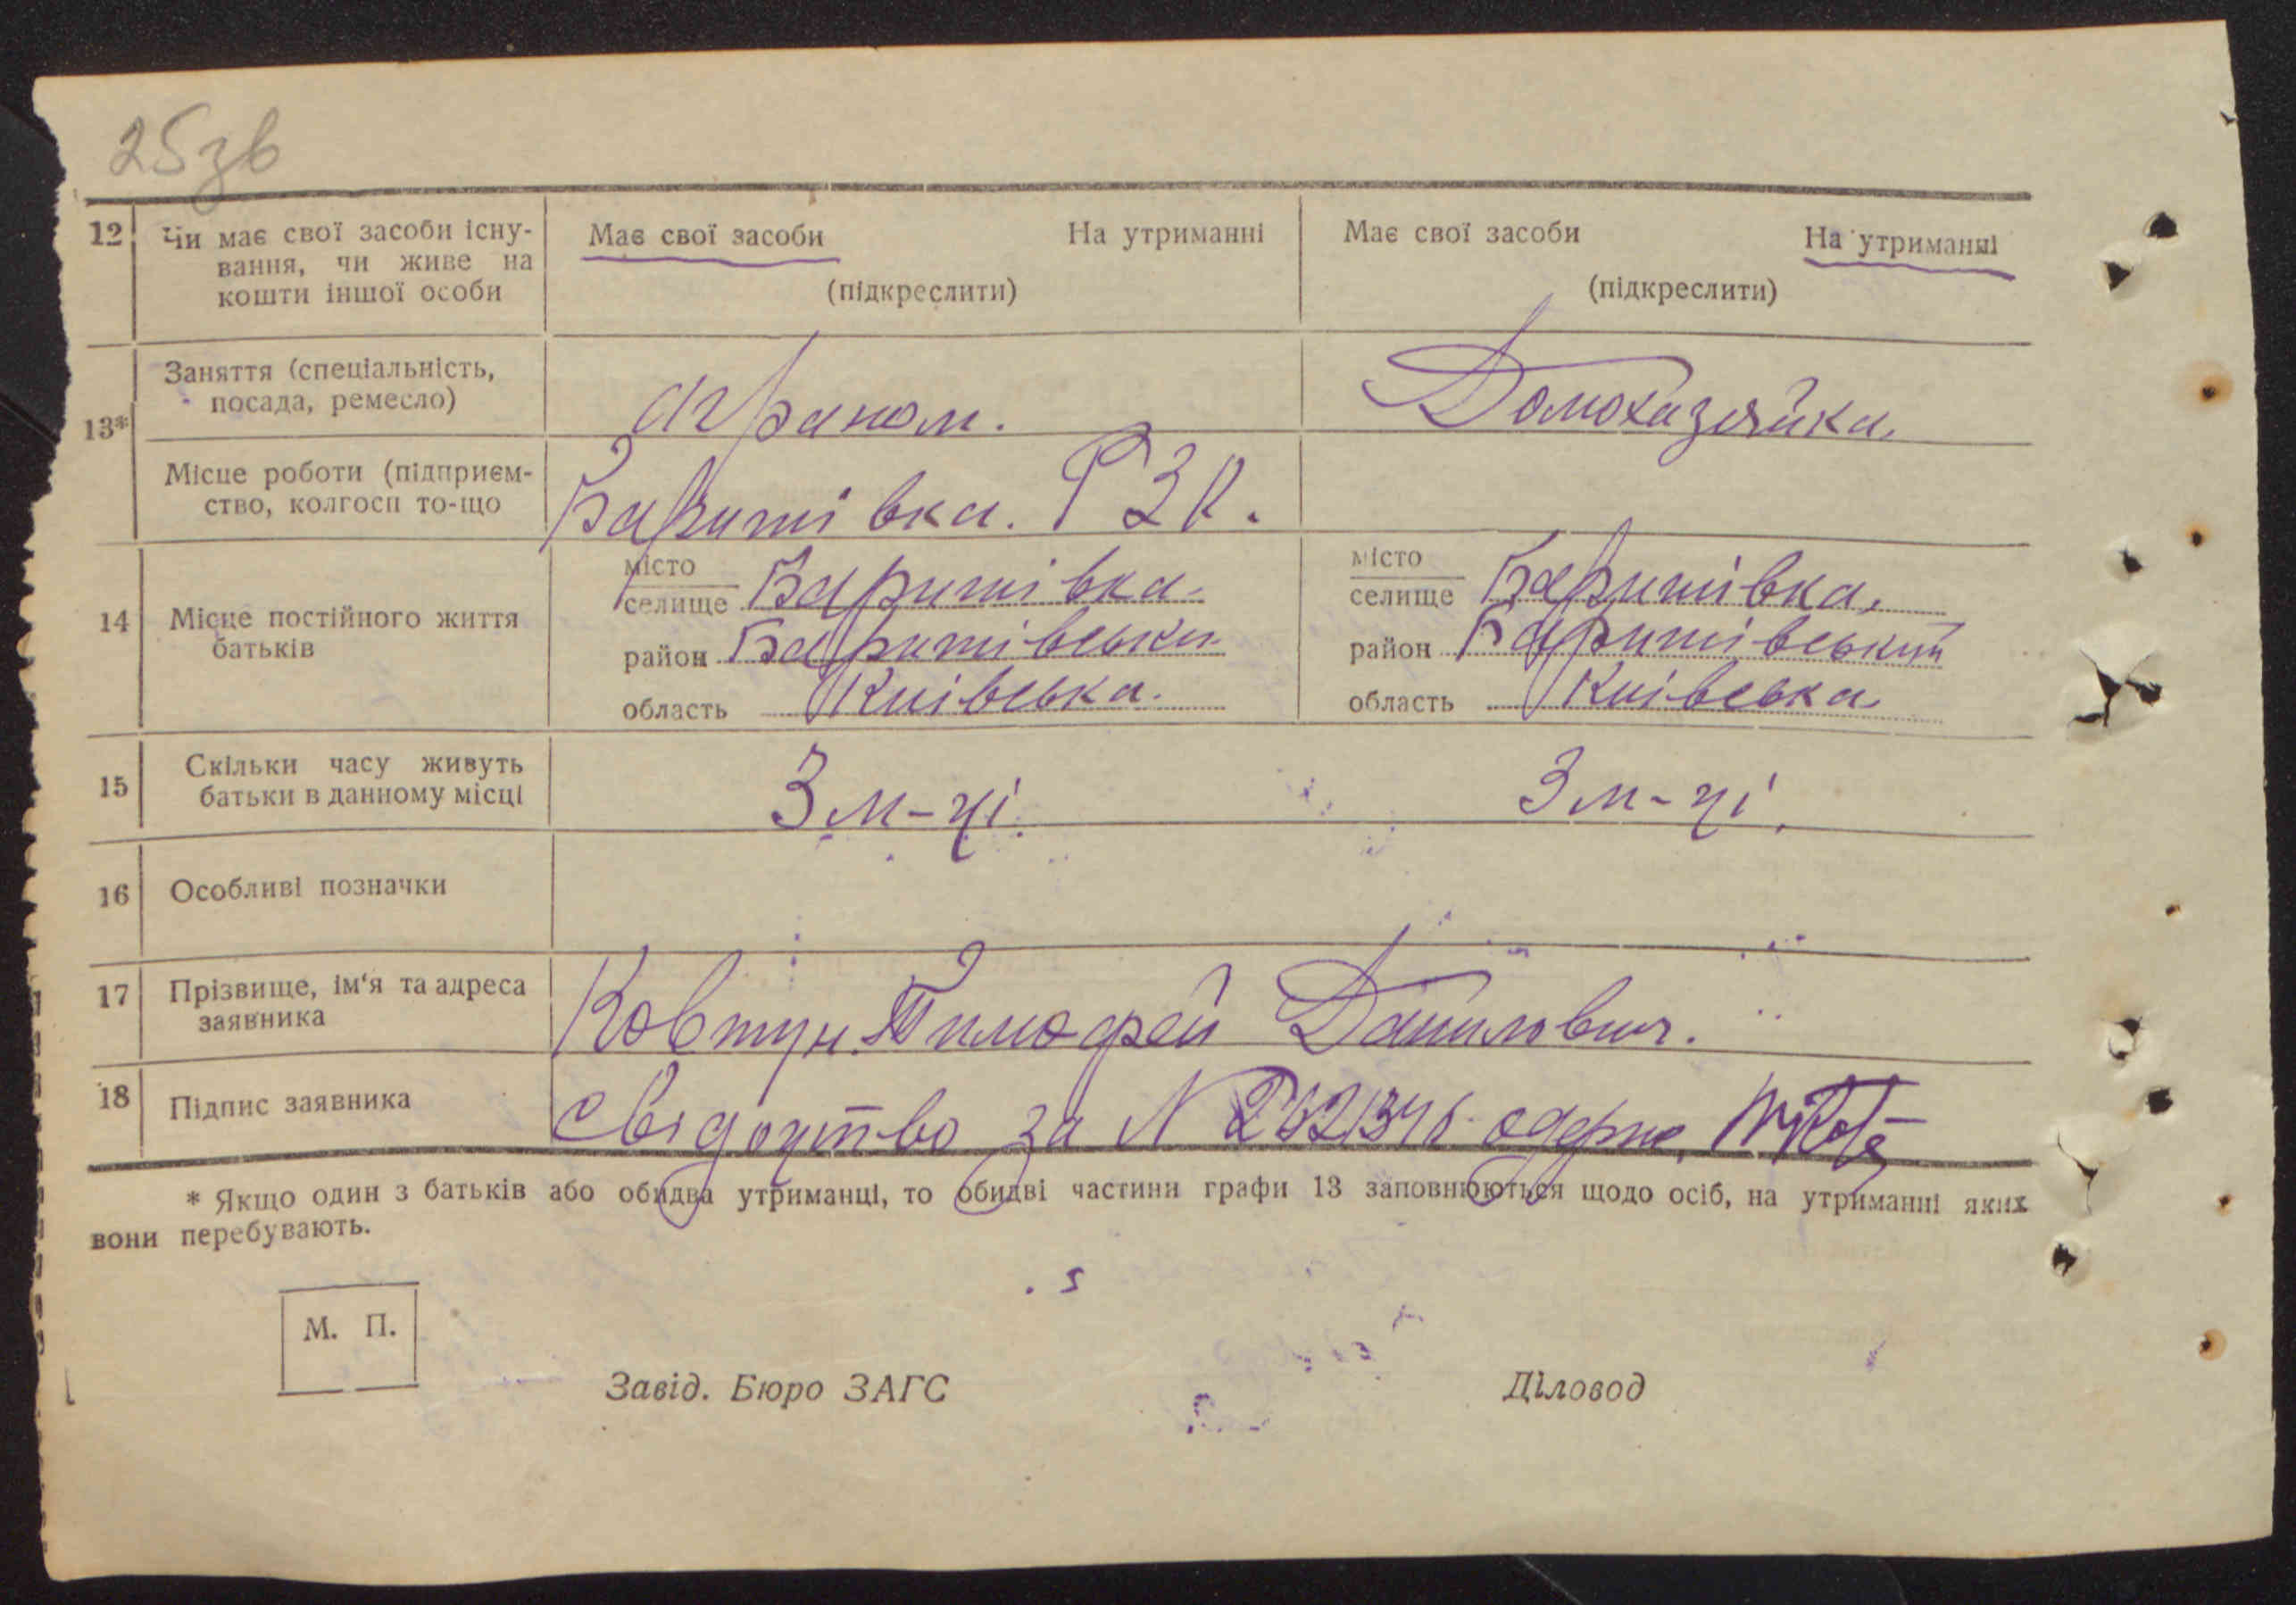 25зв
12 Чи має свої засоби існу- Має свої засоби На утриманні Має свої засоби На утриманні
вання, чи живе на
кошти іншої особи (підкреслити) (підкреслити)
13* Заняття (спеціальність,
посада, ремесло) Аграном. Домохазяйка.
Місце роботи (підприєм-
ство, колгосп то-що Баришівка. РЗК.
14 Місце постійного життя
батьків
місто
селище Баришівка. місто
селище Баришівка.
район Баришівськи район Баришівський
область Київська. область Київська.
15 Скільки часу живуть
батьки в данному місці 3 м-ці. 3 м-ці.
16 Особливі позначки
17 Прізвище, ім'я та адреса
заявника Ковтун Тимофей Данилович.
18 Підпис заявника Свідоцтво за N одержав,
* Якщо один з батьків або обидва утриманці, то обидві частини графи 13 заповнюються щодо осіб, на утриманні яких
вони перебувають.
М. П.
Завід. Бюро ЗАГС Діловод